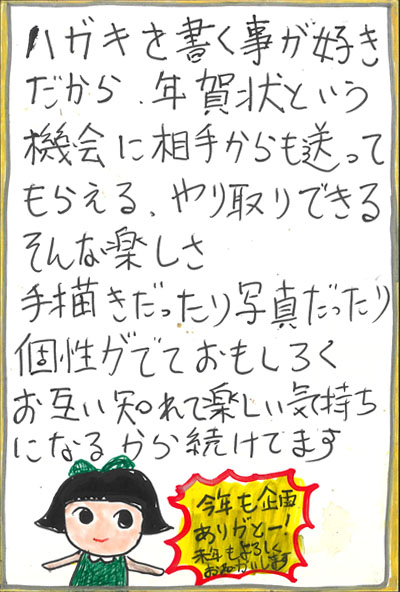 ハガキを書く事が好き
だから、年賀状という
機会に相手からも送って
もらえる、やり取りできる
そんな楽しさ
手描きだったり写真だったり
個性がでておもしろく
お互い知れて楽しい気持ち
になるから続けてます
今年も企画
ありがとー!
来年もよろしく
お願いします